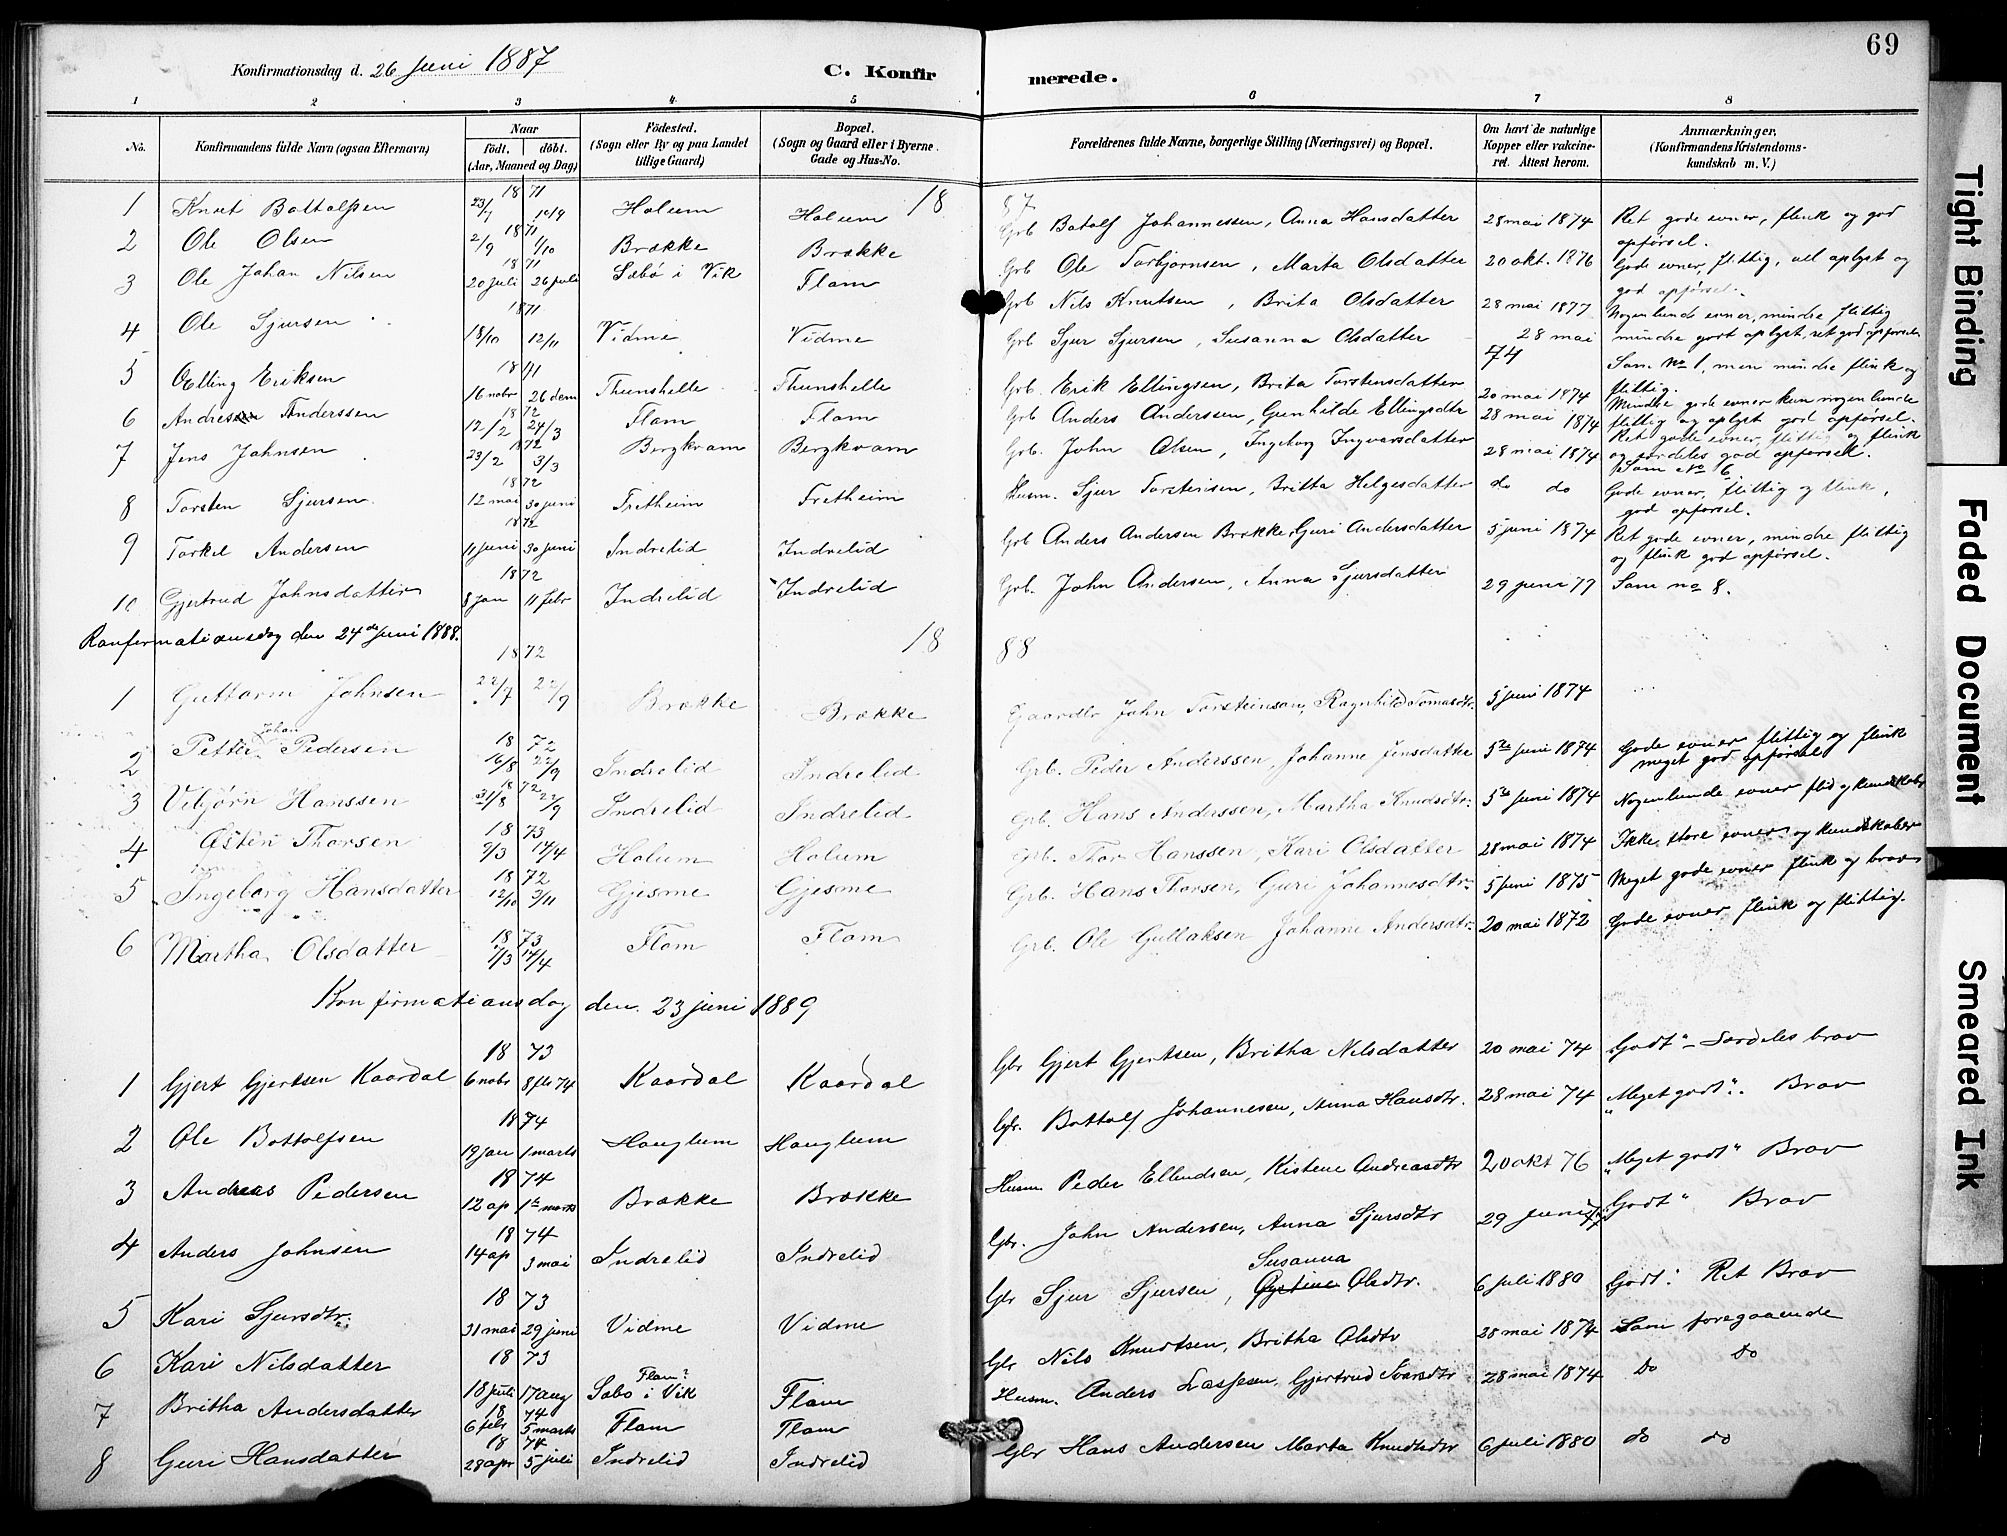 69
Konfirmationsdag d. 26 Juni 1887
C. Konfirmerede.
1 2 3 4 5 6 7 8
No.
Konfirmandens fulde Navn (ogsaa Efternavn)
Naar
Født. døbt.
(Aar, Maaned og Dag)
Fødested.
(Sogn eller By og paa Landet
tillige Gaard)
Bopæl.
(Sogn og Gaard eller i Byerne
Gade og Hus-No.
Forældrenes fulde Navne, borgerlige Stilling (Næringsvei) og Bopæl.
Om havt de naturlige
Kopper eller vakcine-
ret. Attest herom.
Anmærkninger,
(Konfirmandens Kristendoms-
kundskab m. V.)
1887
1 Knut Bottolfsen 1871 23/7 10/9 Holum Holum Grb Botolf Johannessen, Anna Hansdatter 28 mai 1874 Ret gode evner, flink og god opførsel.
2 Ole Olsen 1871 2/9 1/10 Brække Brække Grb Ole Torbjornsen, Marta Olsdatter 20 okt. 1876 Gode evner, flittig, vel oplyst og god opførsel.
3 Ole Johan Nilsen 1871 20 juli 26 juli Sæbö i Vik Flam Grb Nils Knutsen, Brita Olsdatter 28 mai 1877 Nogenlunde evner, mindre flittig
4 Ole Sjursen 1871 18/10 12/11 Vidme Vidme Grb Sjur Sjursen, Susanna Olsdatter 28 mai 74 mindre godt oplyst, ret god opførsel
5 Elling Eriksen 1871 16 nobr 26 decm Thunshelle Thunshelle Grb. Erik Ellingsen, Brita Torstensdatter 20 mai 1874 Som No 1, men mindre flink og flittig.
6 Andres Anderssen 1872 12/2 24/3 Flam Flam Grb Anders Anderssen, Gunhilde Ellingsdtr 28 mai 1874 Mindre gode evner kun nogenlunde flittig og oplyst god opførsel.
7 Jens Johnsen 1872 23/2 3/3 Bergkvam Bergkvam Grb. John Olsen, Ingeborg Ingvarsdatter 28 mai 1874 Ret gode evner, flittig og flink og særdeles god opførsel.
8 Torsten Sjursen 1872 12 mai 30 juni Fretheim Fretheim Husm. Sjur Torsteinsen, Britta Helgesdatter do do Som No 6 Gode evner, flittig og flink, god opførsel.
9 Torkel Andersen 1872 11 juni 30 juni Indrelid Indrelid Grb Anders Andersen Brække, Guri Andersdatter 5 juni 1874 Ret gode evner, mindre flittig og flink god opførsel.
10 Gjertrud Johnsdatter 1872 8 jan 11 febr Indrelid Indrelid Grb. John Andersen, Anna Sjursdatter 29 juni 77 Som no 8.
Konfirmationsdag den 24de juni 1888.
1888
1 Guttorm Johnsen 1872 22/7 22/9 Brække Brække Gaardbr John Torsteinson, Ragnhild Tomasdtr. 5 juni 1874
2 Petter Johan Pedersen 1872 16/8 22/9 Indrelid Indrelid Grb. Peder Anderssen, Johanne Jensdatter 5te juni 1874 Gode evner flittig og flink meget god opførsel
3 Vebjörn Hanssen 1872 31/8 22/9 Indrelid Indrelid Grb. Hans Anderssen, Martha Knudsdtr. 5te juni 1874 Nogenlunde evner flid og kundskaber
4 Østen Thorsen 1873 9/3 14/4 Holum Holum Grb. Thor Hanssen, Kari Olsdatter 28 mai 1874 Ikke store evner og kundskaber
5 Ingeborg Hansdatter 1872 12/10 3/11 Gjesme Gjesme Grb. Hans Thorsen, Guri Johannesdtr. 5 juni 1875 Meget gode evner flink og brav
6 Martha Olsdatter 1873 7/3 14/4 Flam Flam Grb. Ole Gullaksen Johanne Andersdtr. 20 mai 1872 Gode evner flink og flittig.
Konfirmationsdag den 23 juni 1889
1 Gjert Gjertsen Kaardal 1873 6 nobr 8 fb 74 Kaardal Kaardal Gbr Gjert Gjertsen, Britha Nilsdatter 20 mai 74 Godt" – Særdeles brav
2 Ole Bottolfsen 1874 19 jan 1 marts Houglum Houglum Gbr. Bottolf Johannesen, Anna Hansdtr. 28 mai 74 "Meget godt". Brav
3 Andreas Pedersen 1874 12 ap 1te marts Brække Brække Husm Peder Ellendsen, Kistene Andreasdtr 20 okt 76 "Meget godt" Brav
4 Anders Johnsen 1874 14 ap 3 mai Indrelid Indrelid Gbr. John Andersen, Anna Sjursdtr 29 juni 77 Godt" Brav
5 Kari Sjursdtr. 1873 31 mai 29 juni Vidme Vidme Gbr Sjur Sjursen, Susanna Olsdtr. 6 juli 1880 Godt." Ret Brav
6 Kari Nilsdatter 1873 18 juli 17 aug Sæbo i Vik Flam? Flam Gbr Nils Knudtsen, Britha Olsdtr 28 mai 1874 Som foregaaende
7 Britha Andersdatter 1874 6 febr 5 marts Flam Flam Husm. Anders Lassesen, Gjertrud Ivarsdtr 28 mai 1874 Do Do
8 Guri Hansdatter 1874 28 apr 5 juli Indrelid Indrelid Gbr Hans Andersen Marta Knudtsdtr 6 juli 1880 do do
Tight Binding
Faded Document
Smeared Ink